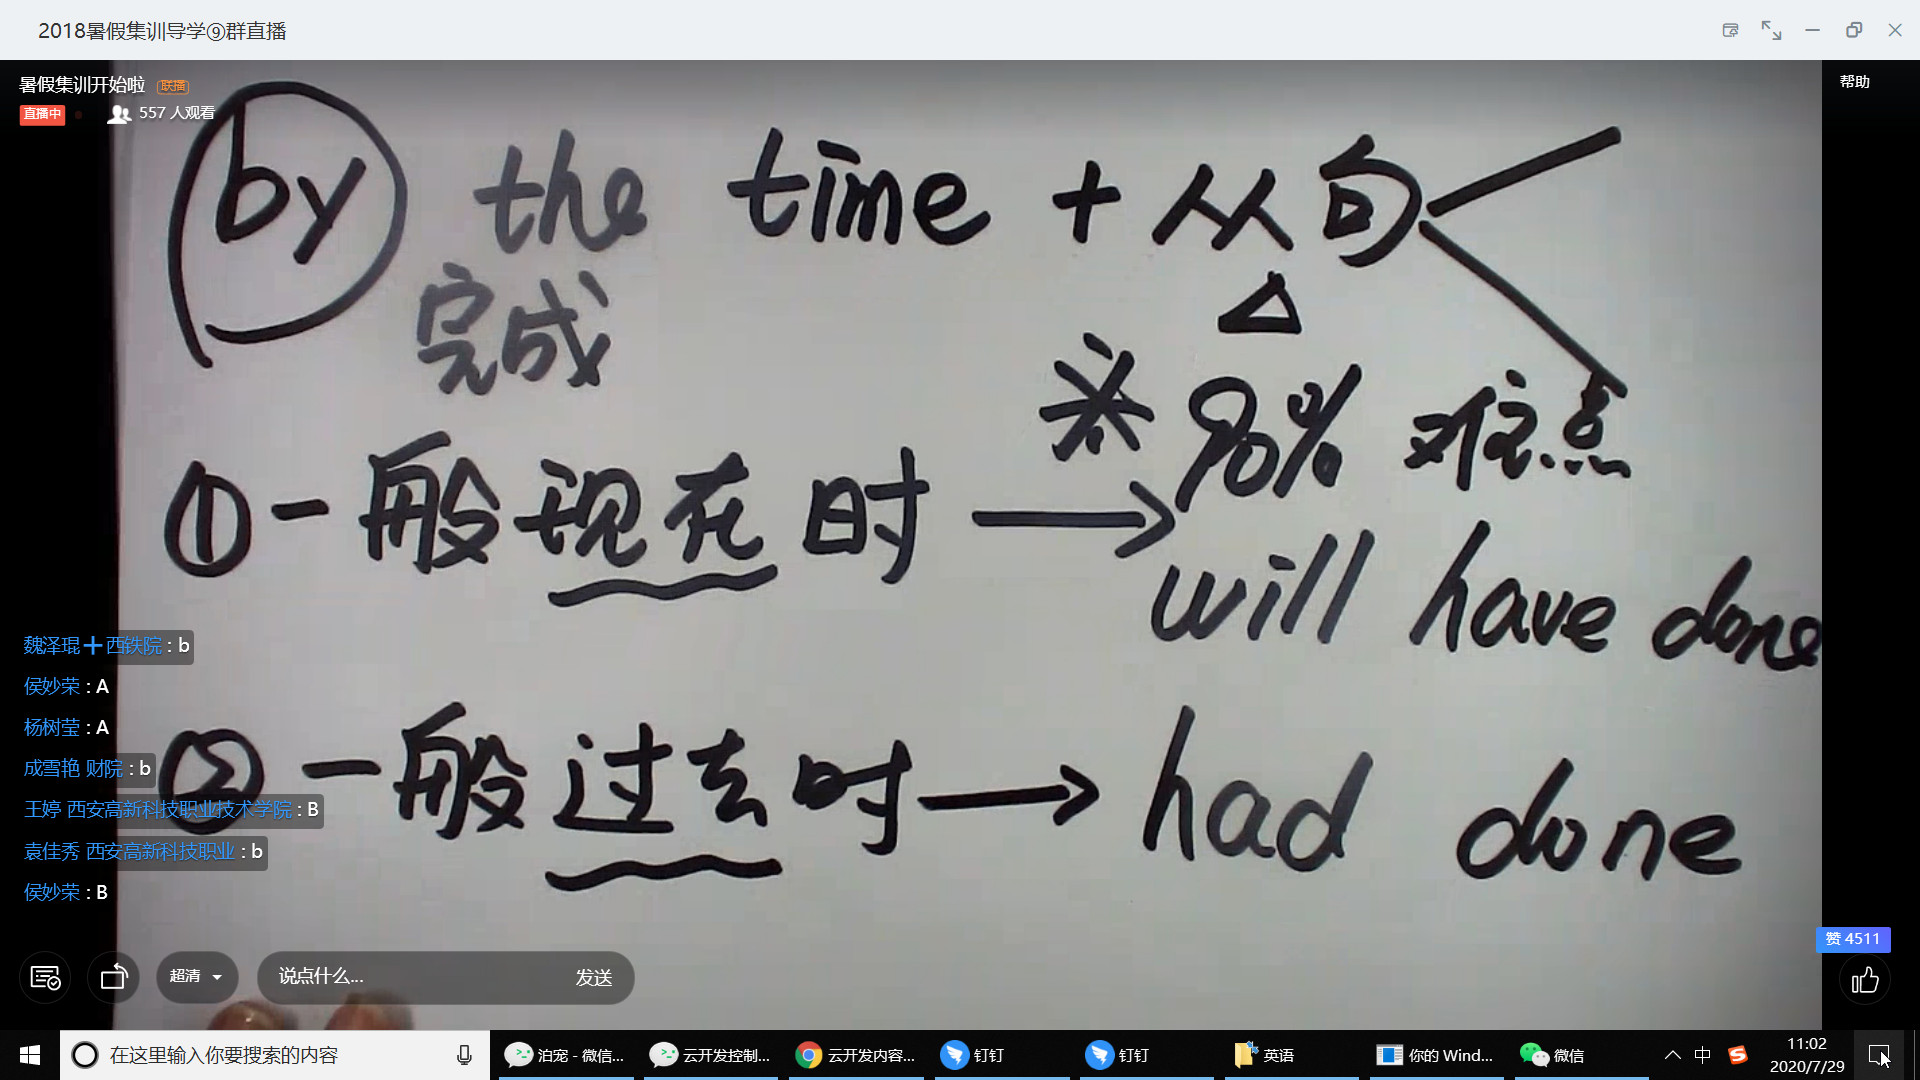 2018暑假集训导学⑨群直播
暑假集训开始啦 联播
帮助
直播中 557 人观看
by the time + 从句
完成
※ 90% 难点
①一般现在时 → will have done
②一般过去时 → had done
魏泽琨➕西铁院 : b
侯妙荣 : A
杨树莹 : A
成雪艳 财院 : b
王婷 西安高新科技职业技术学院 : B
袁佳秀 西安高新科技职业 : b
侯妙荣 : B
赞 4511
超清 说点什么... 发送
在这里输入你要搜索的内容 泊宠 - 微信... 云开发控制... 云开发内容... 钉钉 钉钉 英语 你的 Wind... 微信 中 11:02
2020/7/29